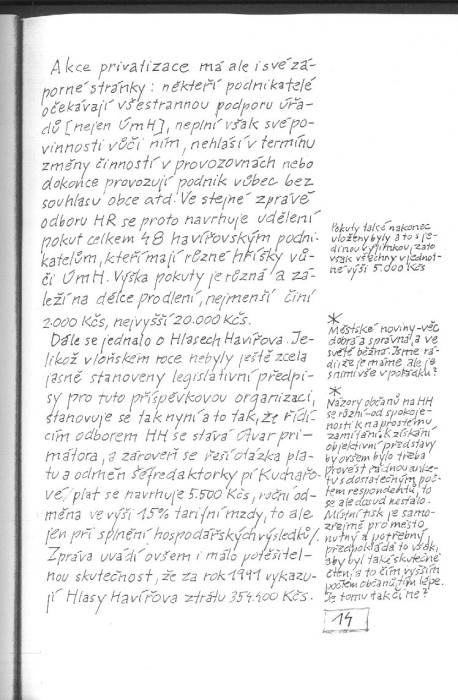 Akce privatizace má ale i své zá-
porné stránky: někteří podnikatelé
očekávají všestrannou podporu úřa-
dů [nejen ÚmH], neplní však své po-
vinnosti vůči ním, nehlásí v termínu
změny činností v provozovnách nebo
dokonce provozují podnik vůbec bez
souhlasu obce atd. Ve stejné zprávě
odboru HR se proto navrhuje udělení
pokut celkem 48 havířovským podni-
katelům, kteří mají různé hříšky vů-
či ÚmH. Výška pokuty je různá a zá-
leží na délce prodlení, nejmenší činí
2.000 Kčs, nejvyšší 20.000 Kčs.
Dále se jednalo o Hlasech Havířova. Je-
likož v loňském roce nebyly ještě zcela
jasně stanoveny legislativní předpi-
sy pro tuto příspěvkovou organizaci,
stanovuje se tak nyní a to tak, že řídí-
cím odborem HH se stává útvar pri-
mátora, a zároveň se řeší otázka pla-
tu a odměn šéfredaktorky pí Kuchařo-
vé/ plat se navrhuje 5.500 Kčs, roční od-
měna ve výši 15% tarifní mzdy, to ale
jen při splnění hospodářských výsledků/.
Zpráva uvádí ovšem i málo potěšitel-
nou skutečnost, že za rok 1991 vykazu-
jí Hlasy Havířova ztrátu 354.400 Kčs.
Pokuty také nakonec
uloženy byly a to s je-
dinou výjimkou, zato
však všechny v jednot-
né výši 5.000 Kčs
*
Městské noviny-věc
dobrá a správná, a ve
světě běžná. Jsme rá-
di, že je máme, ale je
s nimi vše v pořádku?
*
Názory občanů na HH
se různí-od spokoje-
nosti k naprostému
zamítání. K získání
objektivní představy
by ovšem bylo třeba
provést řádnou anke-
tu s dostatečným poč-
tem respondentů, to
se ale dosud nestalo.
Místní tisk je samo-
zřejmě pro město
nutný a potřebný,
předpokládá to však,
aby byl také skutečně
čten, a to čím vyšším
počtem občanů, tím lépe.
Je tomu tak či ne?
14